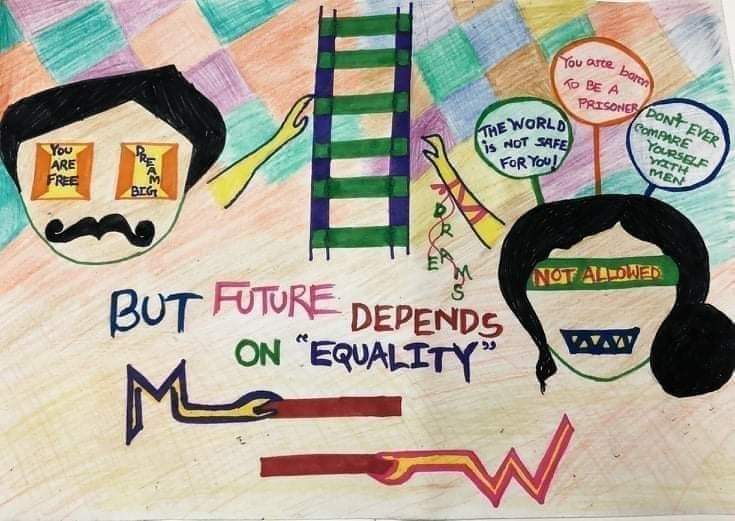 YOU
ARE
FREE
DREAM
BIG
THE WORLD
is NOT SAFE
FOR YOU!
You are born
TO BE A
PRISONER
DON'T EVER
COMPARE
YOURSELF
WITH
MEN
DREAMS
NOT ALLOWED
BUT FUTURE DEPENDS
ON "EQUALITY"
M
W